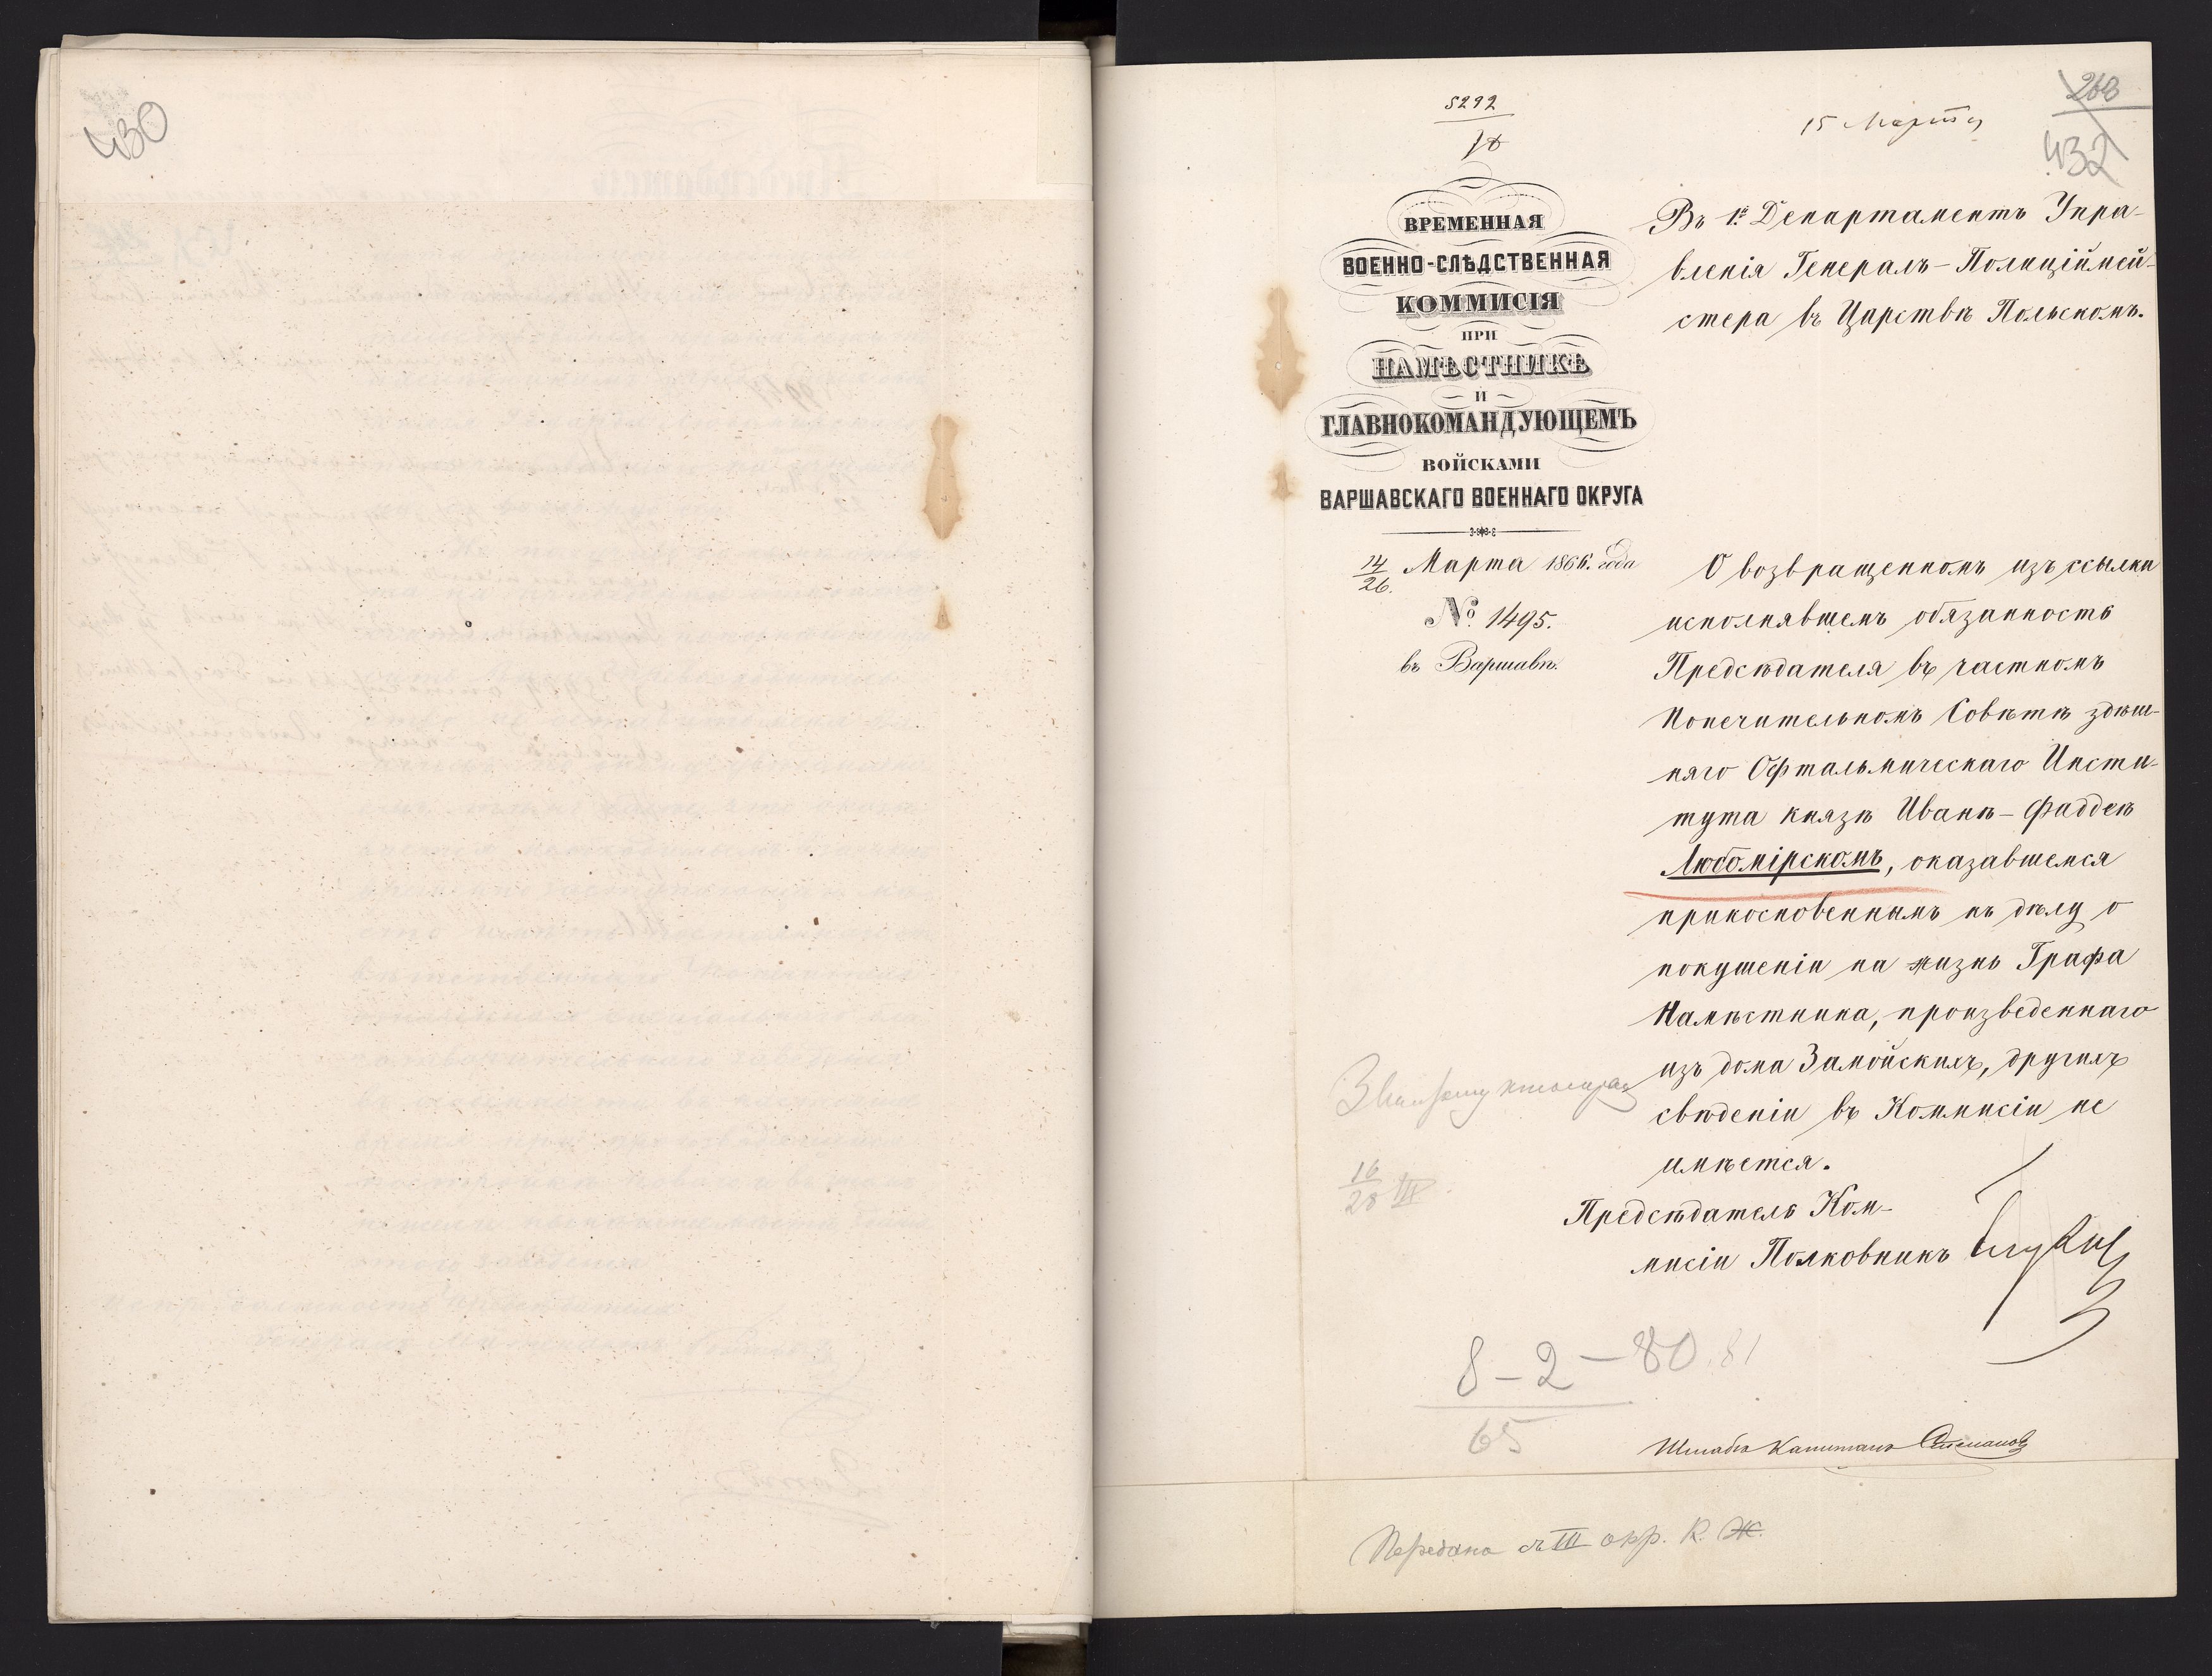 430
5292
18
15 Марта
268
432
ВРЕМЕННАЯ
ВОЕННО-СЛѢДСТВЕННАЯ
КОММИСІЯ
ПРИ
НАМѢСТНИКѢ
И
ГЛАВНОКОМАНДУЮЩЕМЪ
ВОЙСКАМИ
ВАРШАВСКАГО ВОЕННАГО ОКРУГА
14/26. Марта 1866. года
№ 1495.
въ Варшавѣ.
Въ 1й Департаментъ Упра-
вленія Генералъ-Полиціймей-
стера въ Царствѣ Польскомъ.
О возвращенномъ изъ ссылки
исполнявшемъ обязанность
Предсѣдателя въ частномъ
Попечительномъ Совѣтѣ здѣш-
няго Офтальмическаго Инсти-
тута князѣ Иванѣ-Фаддеѣ
Любомірскомъ, оказавшемся
прикосновеннымъ къ дѣлу о
покушеніи на жизнь Графа
Намѣстника, произведеннаго
изъ дома Замойскихъ, другихъ
свѣденіи въ Коммисіи не
имѣется.
Предсѣдатель Ком-
мисіи Полковникъ
16/28 III
8-2-80.81
65
Штабсъ Капитанъ Степановъ
Передана съ III окр. К. Ж.